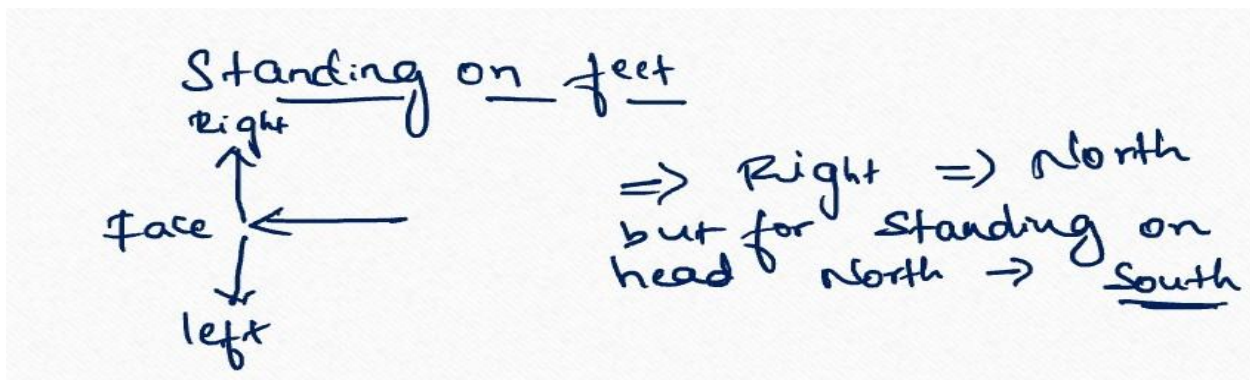 Standing on feet
Right
Face
left
=> Right => North
but for standing on
head North → South